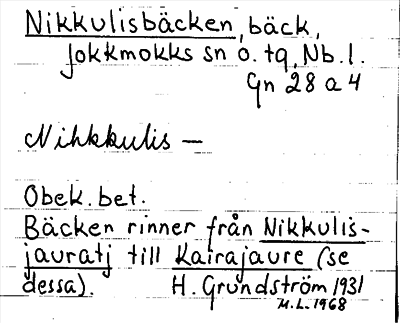 Nikkulisbäcken, bäck,
Jokkmokks sn o. tq, Nb.l.
Gn 28 a 4
Nihkkulis —
Obek. bet.
Bäcken rinner från Nikkulis-
jauratj till Kairajaure (se
dessa). H. Grundström 1931
M.L. 1968